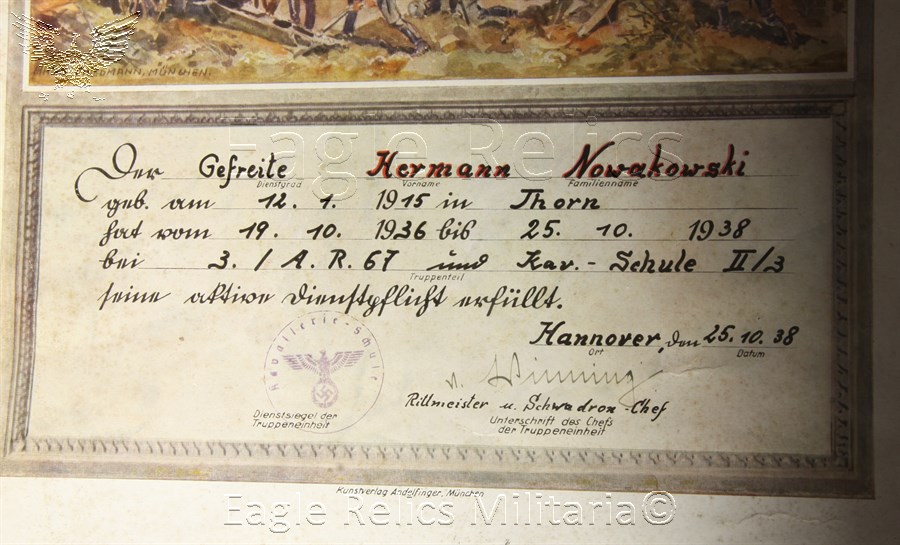 MÜNCHEN.
Eagle Relics
Der Gefreite Hermann Nowakowski
Dienstgrad Vorname Familienname
geb. am 12. 1. 1915 in Thorn
hat vom 19. 10. 1936 bis 25. 10. 1938
bei 3. / A. R. 67 und Kav. - Schule II/3
Truppenteil
seine aktive Dienstpflicht erfüllt.
Hannover, den 25. 10. 38
Ort Datum
Kavallerie-Schule
v. Winning
Rittmeister u. Schwadron-Chef
Dienstsiegel der
Truppeneinheit
Unterschrift des Chefs
der Truppeneinheit
Kunstverlag Andelfinger, München
Eagle Relics Militaria©